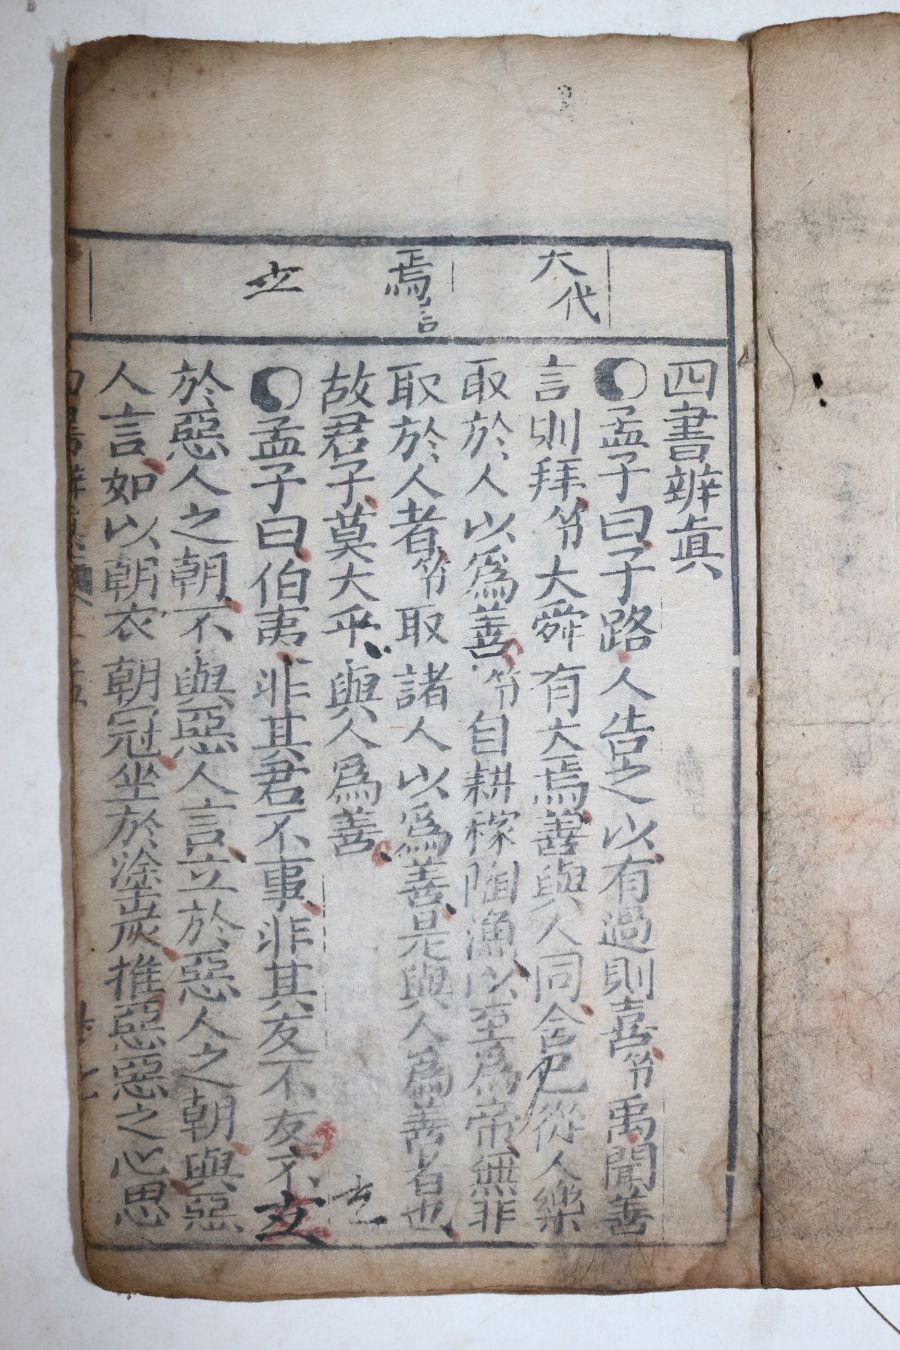 大代
焉言
立
四書辨眞
孟子曰子路人告之以有過則喜笒禹聞善
言則拜笒大舜有大焉善與人同舍己從人樂
取於人以爲善笒自耕稼陶漁以至爲帝無非
取於人者笒取諸人以爲善是與人爲善者也
故君子莫大乎與人爲善
孟子曰伯夷非其君不事非其友不友不立
於惡人之朝不與惡人言立於惡人之朝與惡
人言如以朝衣朝冠坐於塗炭推惡惡之心思